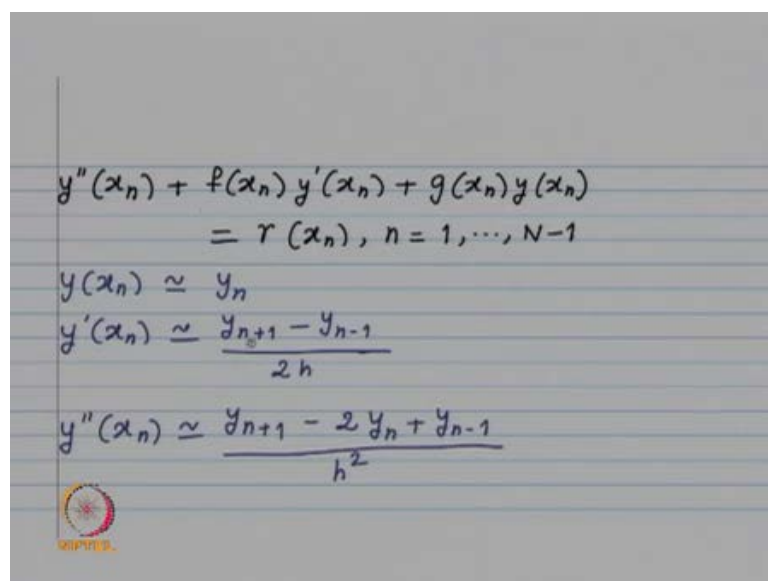 y''(xₙ) + f(xₙ) y'(xₙ) + g(xₙ) y(xₙ)
= r(xₙ), n = 1, ..., N-1
y(xₙ) ≃ yₙ
y'(xₙ) ≃ (yₙ₊₁ - yₙ₋₁) / 2h
y''(xₙ) ≃ (yₙ₊₁ - 2yₙ + yₙ₋₁) / h²
NPTEL